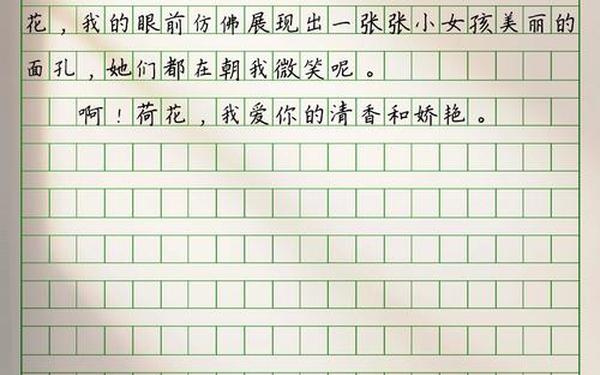 花，我的眼前仿佛展现出一张张小女孩美丽的
面孔，她们都在朝我微笑呢。
啊！荷花，我爱你的清香和娇艳。